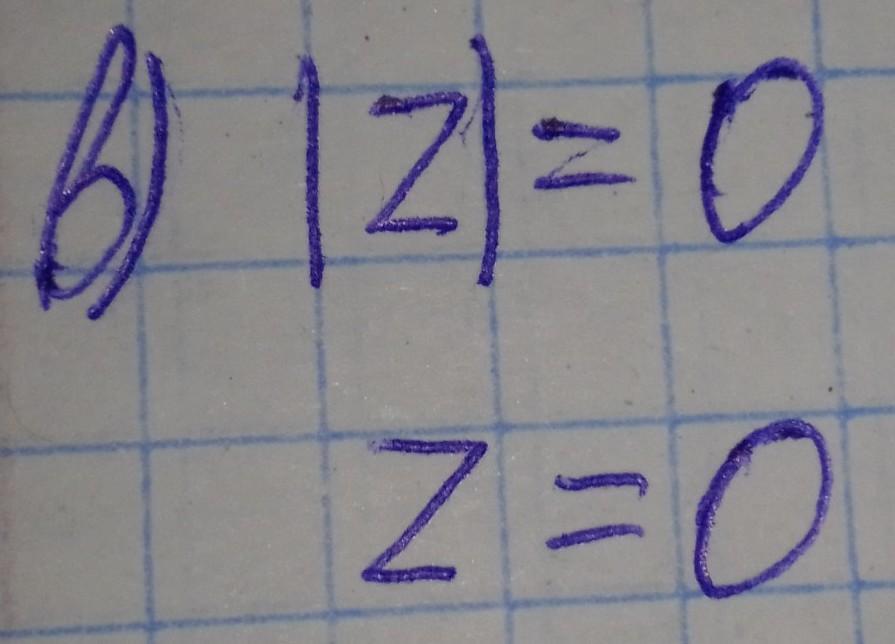 в) |z| = 0
z = 0